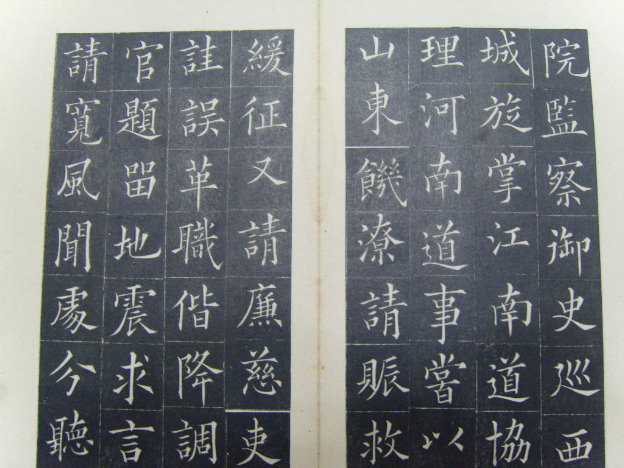 院監察御史巡西
城旋掌江南道協
理河南道事嘗以
山東饑潦請賑救
緩征又請廉慈吏
詿誤革職偕降調
官題留地震求言
請寬風聞處分聽